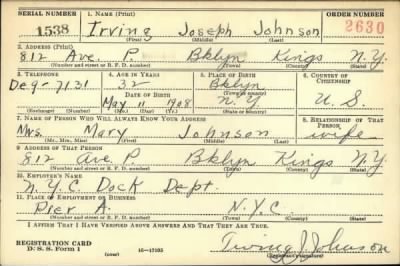 SERIAL NUMBER 1. NAME (Print) ORDER NUMBER
1538 Irving Joseph Johnson 2630
(First) (Middle) (Last)
2. ADDRESS (Print)
812 Ave. P. Bklyn Kings N.Y.
(Number and street or R. F. D. number) (Town) (County) (State)
3. TELEPHONE 4. AGE IN YEARS 5. PLACE OF BIRTH 6. COUNTRY OF CITIZENSHIP
De9-2131 32 Bklyn
DATE OF BIRTH (Town or county)
May 11 1908 N.Y U.S.
(Exchange) (Number) (Mo.) (Day) (Yr.) (State or country)
7. NAME OF PERSON WHO WILL ALWAYS KNOW YOUR ADDRESS 8. RELATIONSHIP OF THAT PERSON
Mrs. Mary Johnson wife
(Mr., Mrs., Miss) (First) (Middle) (Last)
9. ADDRESS OF THAT PERSON
812 Ave P. Bklyn Kings N.Y
(Number and street or R. F. D. number) (Town) (County) (State)
10. EMPLOYER'S NAME
N.Y.C. Dock Dept.
11. PLACE OF EMPLOYMENT OR BUSINESS
Pier A. N.Y.C.
(Number and street or R. F. D. number) (Town) (County) (State)
I AFFIRM THAT I HAVE VERIFIED ABOVE ANSWERS AND THAT THEY ARE TRUE.
REGISTRATION CARD
D. S. S. Form 1 16-17105 Irving J Johnson
(Registrant's signature)